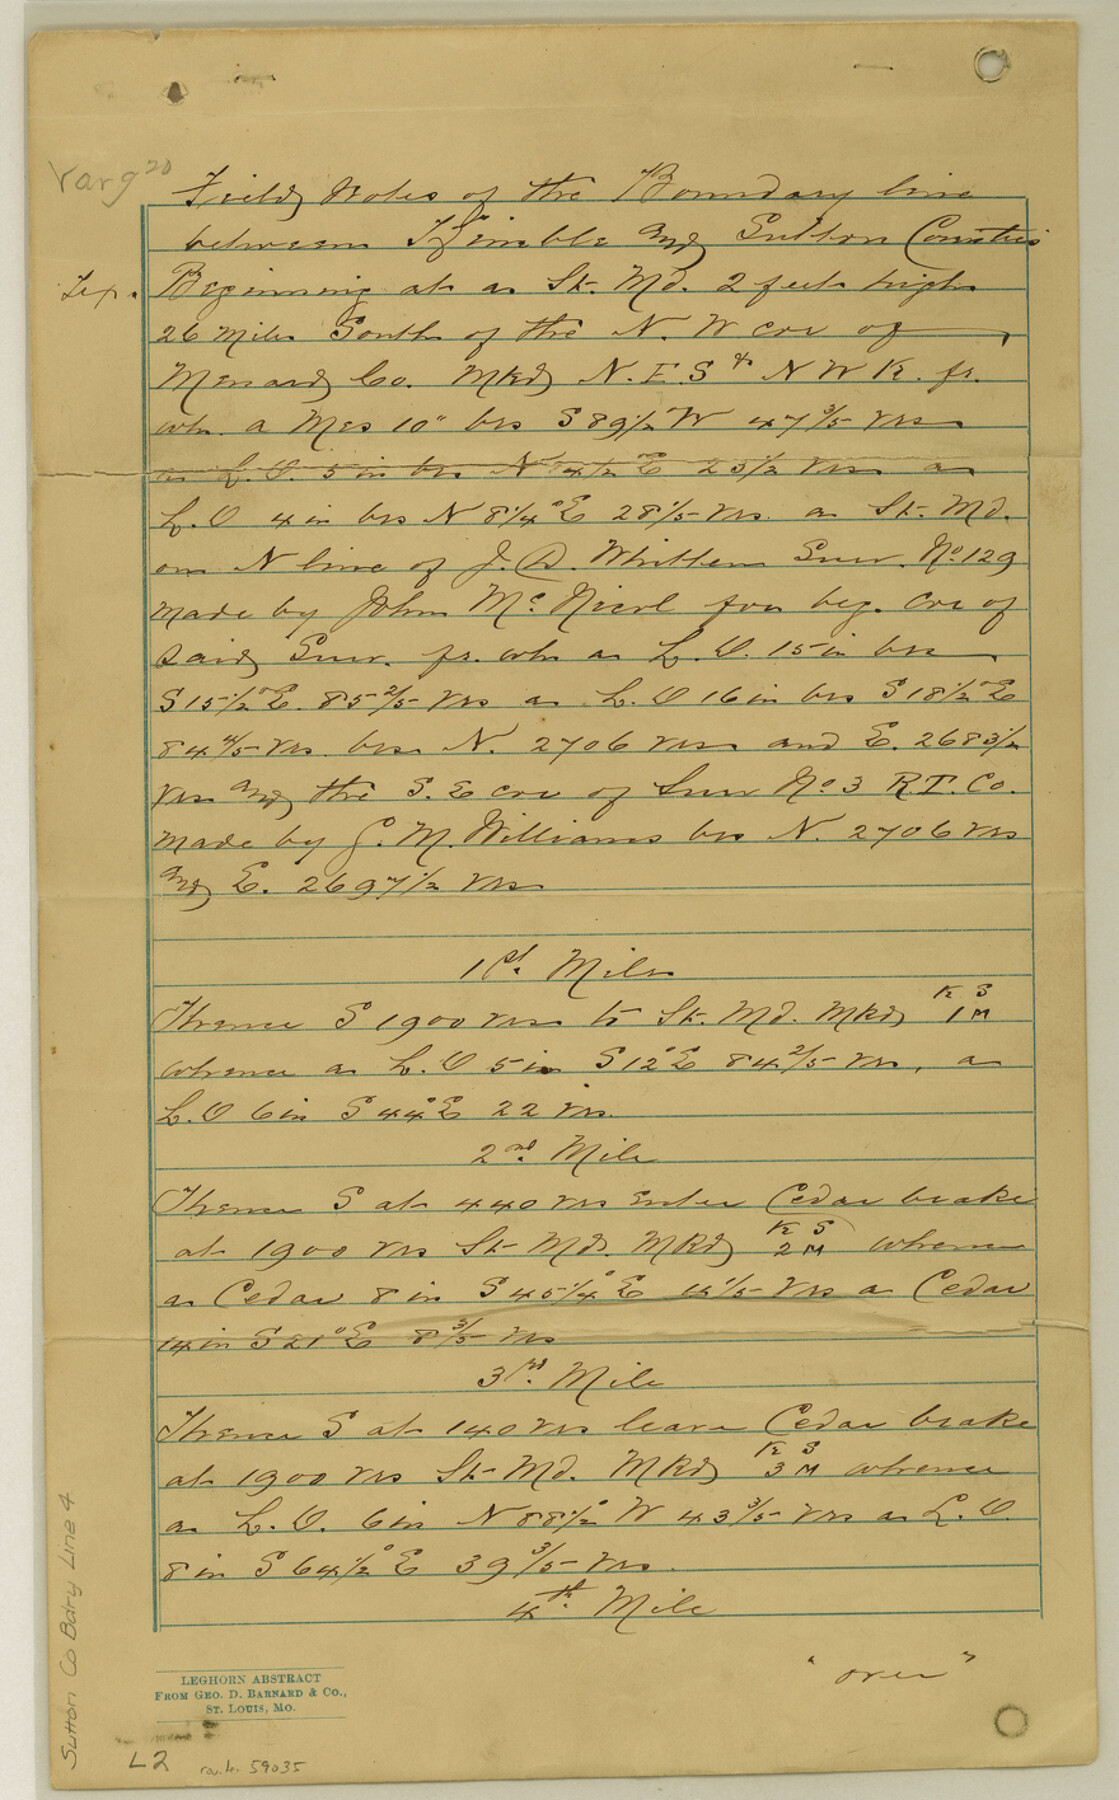 Var 9 20
Field Notes of the Boundary line
between Kimble and Sutton Counties
Beginning at a St. Md. 2 feet high
26 Miles South of the N. W cor of
Menard Co. Mkd N. E. S & N W K. fr.
wh. a Mes 10" brs S 89 1/2 W 47 3/5 vrs
a L. O. 5 in brs N 4 1/2 E 23 1/2 vrs a
L. O 4 in brs N 8 1/4° E 28 1/5 vrs. a St. Md.
on N line of J. D. Whitten Sur. No. 129
made by John Mc Nicol for beg. cor of
said Sur. fr. wh a L. O. 15 in brs
S 15 1/2° E. 85 2/5 vrs a L. O 16 in brs S 18 1/2° E
84 4/5 vrs. brs N. 2706 vrs and E. 2683 1/2
vrs and the S. E cor of Sur No 3 R. T. Co.
made by G. M. Williams brs N. 2706 vrs
and E. 2697 1/2 vrs
1st. Mile
Thence S 1900 vrs to St. Md. Mkd K S 1 M
whence a L. O 5 in S 12° E 84 2/5 vrs, a
L. O 6 in S 44° E 22 vrs.
2nd. Mile
Thence S at 440 vrs enter Cedar brake
at 1900 vrs St Md. Mkd K S 2 M whence
a Cedar 8 in S 45 1/4° E 15 1/5 vrs a Cedar
14 in S 21° E 8 3/5 vrs
3rd. Mile
Thence S at 140 vrs leave Cedar brake
at 1900 vrs St Md. Mkd K S 3 M whence
a L. O. 6 in N 88 1/2° W 43 3/5 vrs a L. O.
8 in S 64 1/2° E 39 3/5 vrs.
4th. Mile
"over"
LEGHORN ABSTRACT
FROM GEO. D. BARNARD & CO.,
ST. LOUIS, MO.
Sutton Co Bdry Line 4
L2
59035